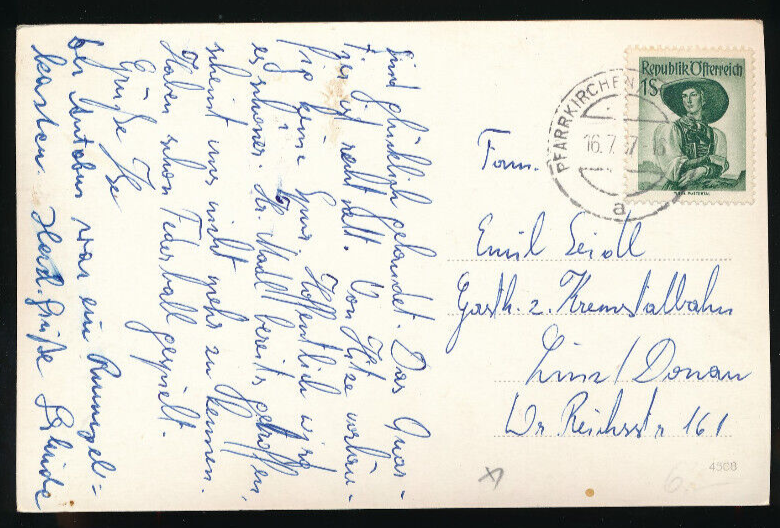 sind glücklich gelandet. Das Quar-
tier ist recht nett. Von Hitze vorläu-
fig keine Spur. Hoffentlich wird
es schöner. Hr. Madl bereits getroffen,
scheint uns nicht mehr zu kennen.
Haben schon Federball gespielt.
Grüße Ilse
der Autobus war ein Rumpel=
kasten. Herzl. Grüße
Republik Österreich
1S
PFARRKIRCHEN
16.7.57
a
Fam.
Emil Seidl
Gasth. z. Kremstalbahn
Linz/Donau
Wr Reichsstr 161
4568
6.-